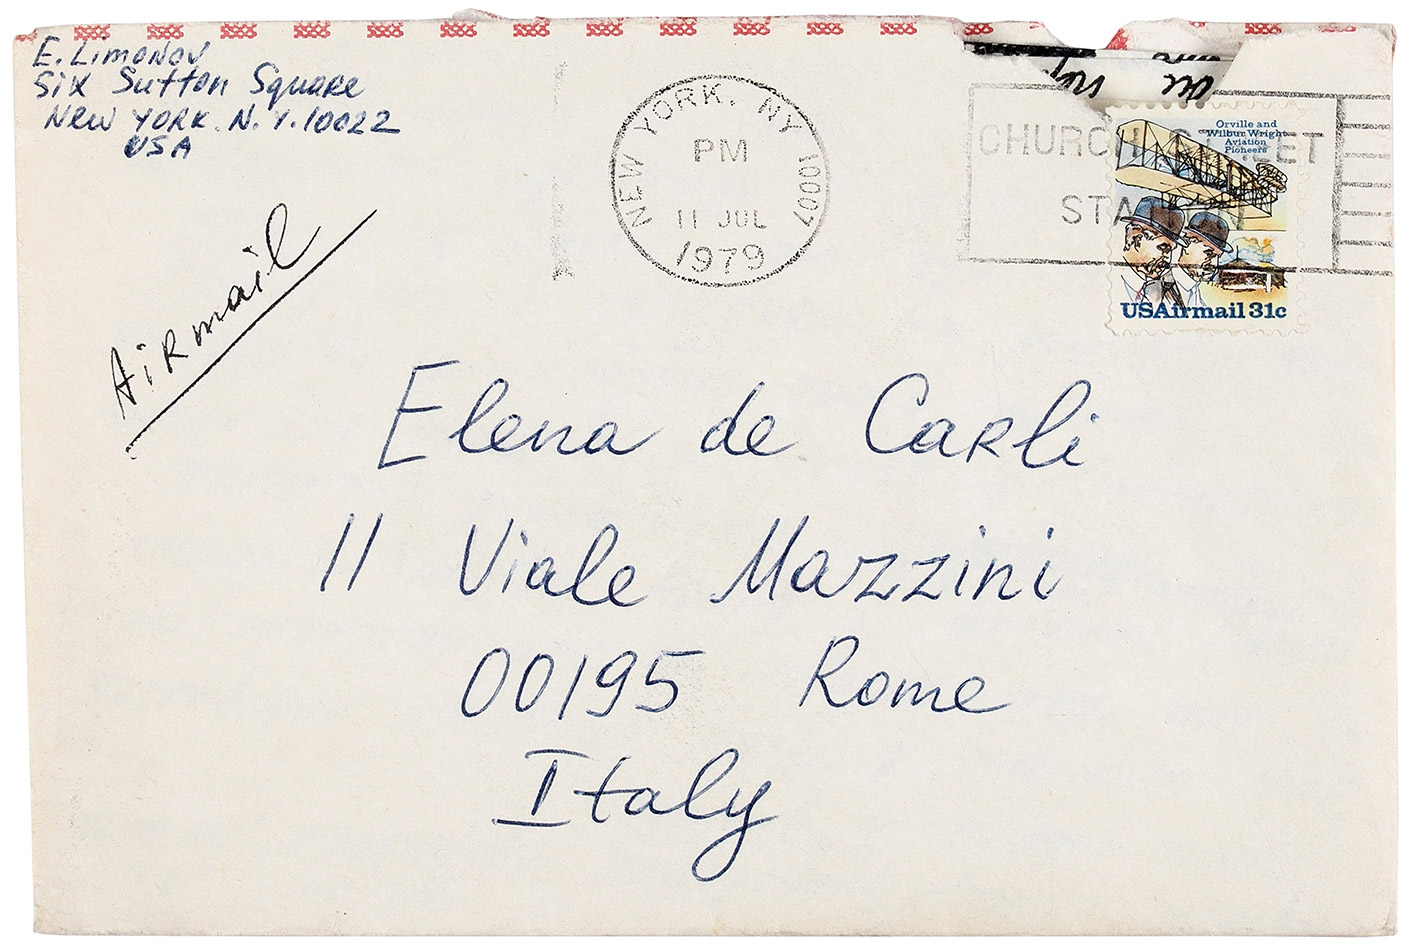 E. Limonov
Six Sutton Square
New York. N.Y. 10022
USA
NEW YORK, NY 10007
PM
11 JUL
1979
CHURCH STREET
STATION
Orville and
Wilbur Wright
Aviation
Pioneers
USAirmail 31c
Airmail
Elena de Carli
11 Viale Mazzini
00195 Rome
Italy